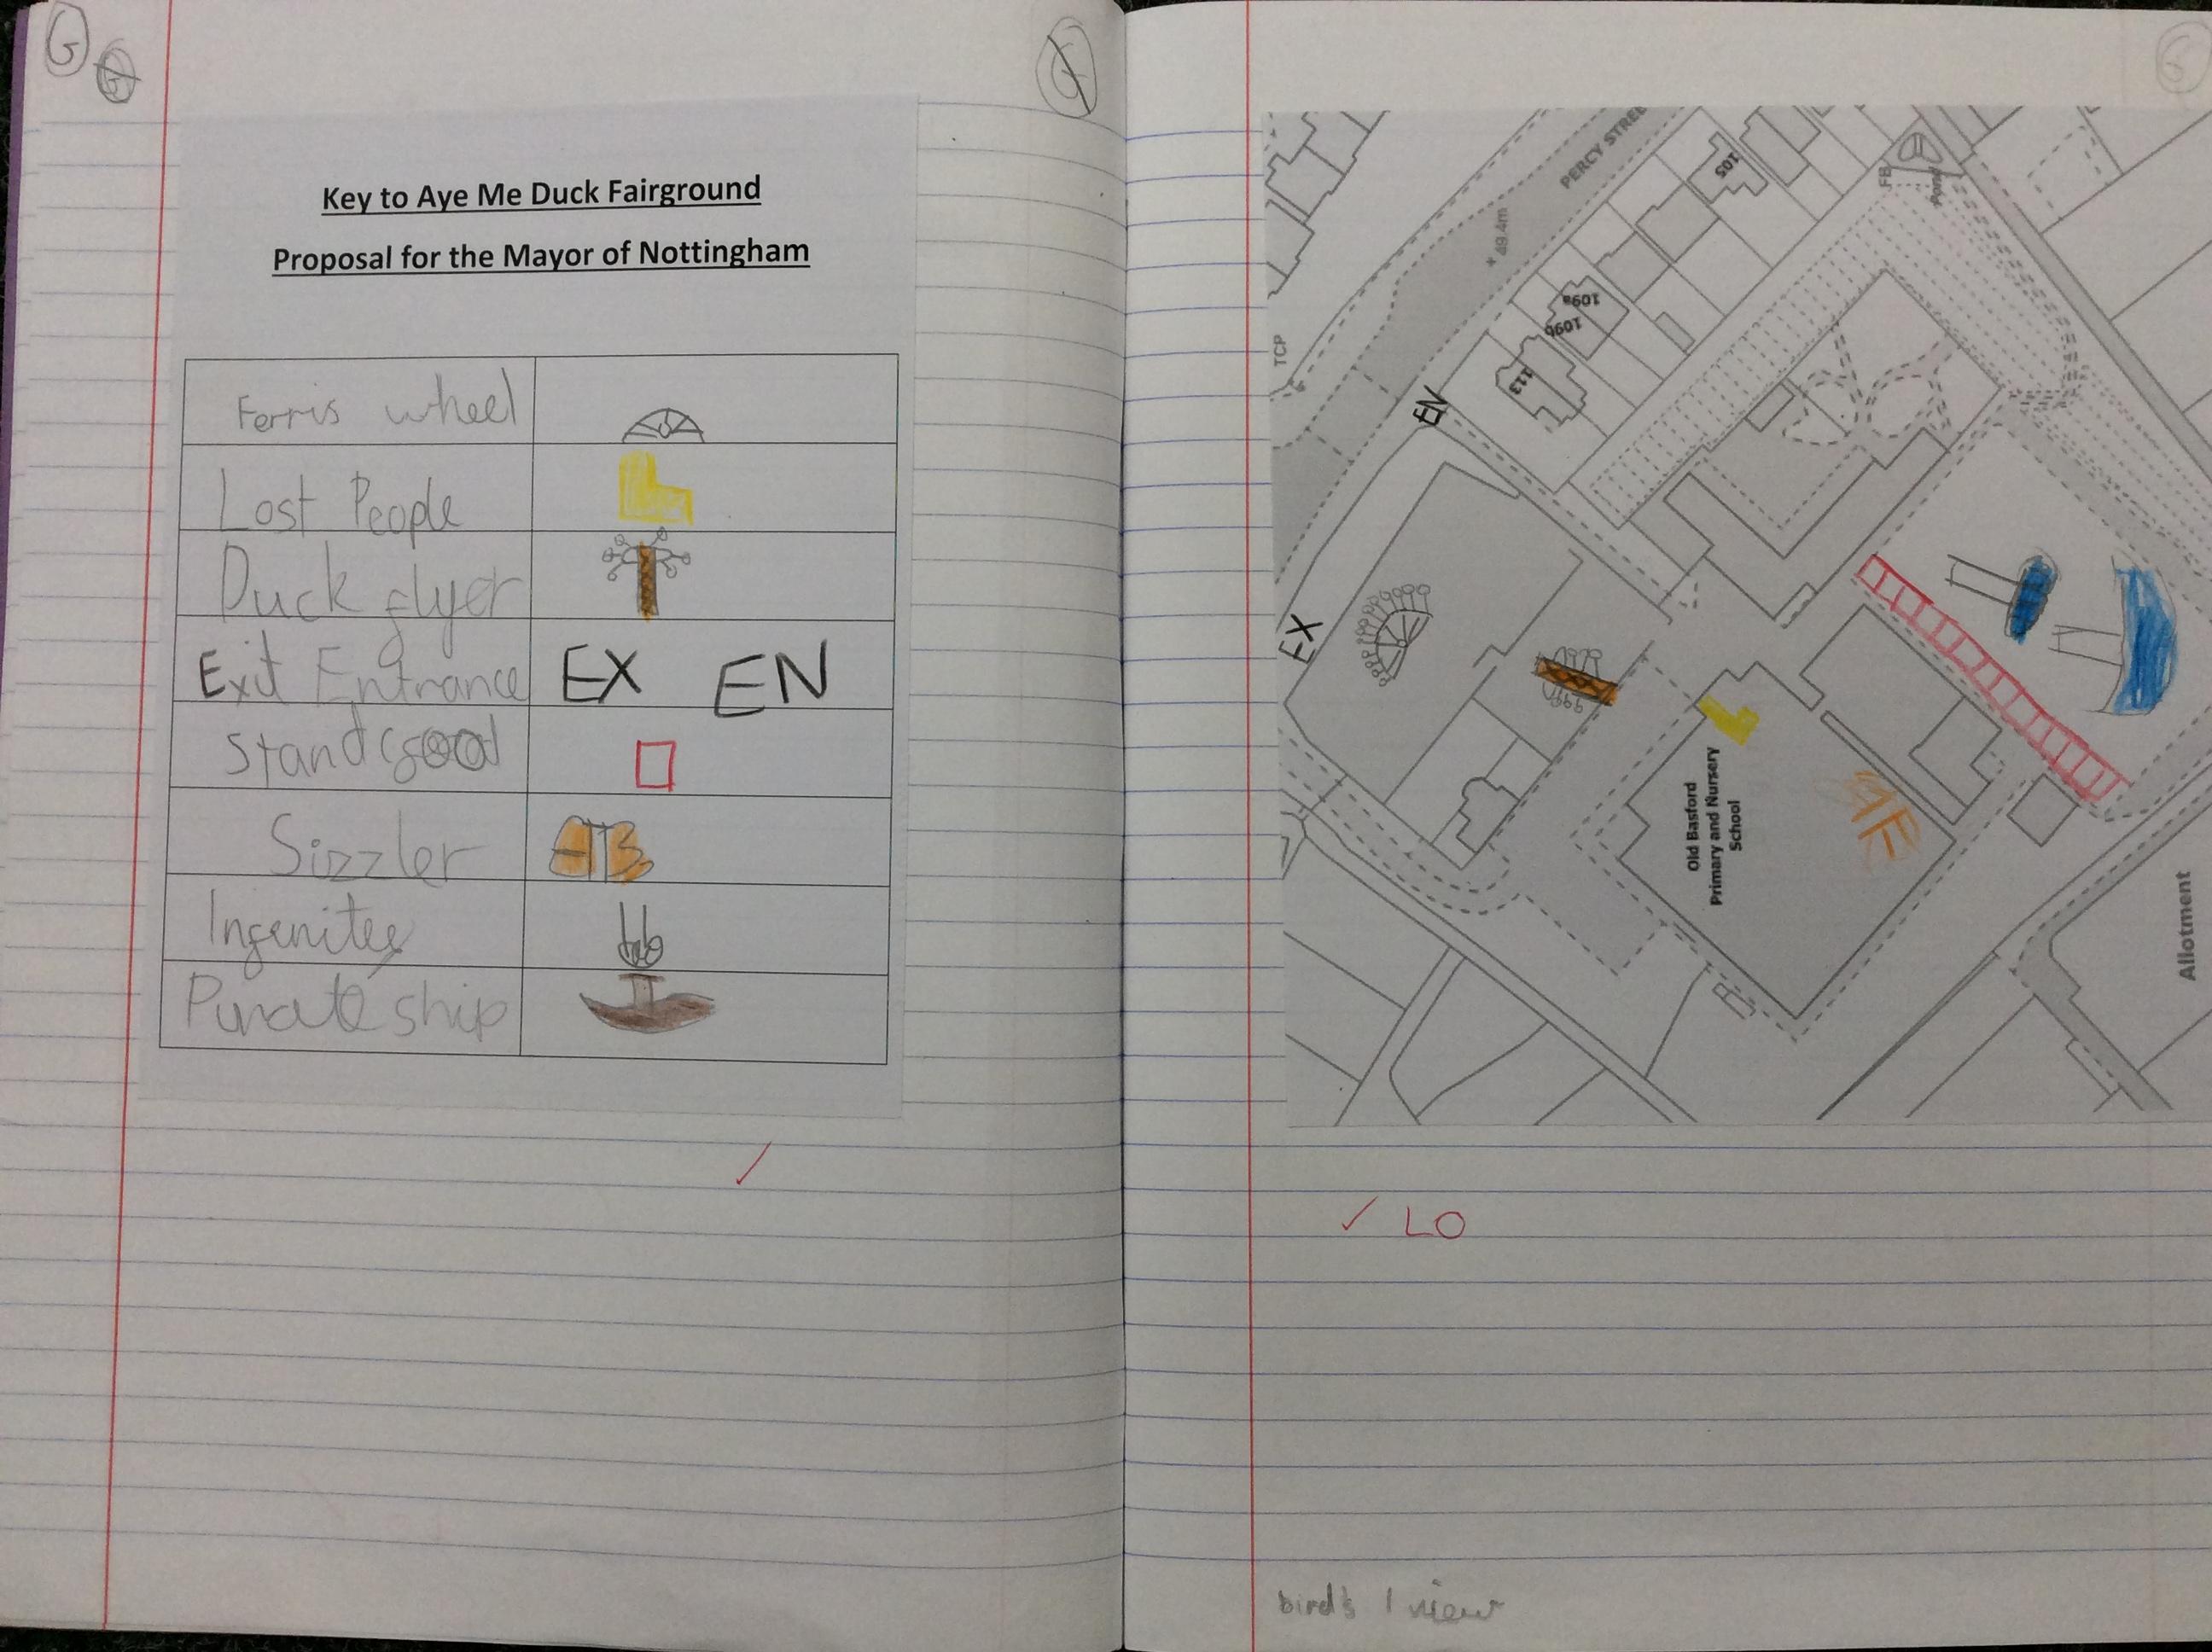 G
G
G
Key to Aye Me Duck Fairground
Proposal for the Mayor of Nottingham
Ferris wheel
Lost People
Duck flyer
Exit Entrance EX EN
Stand food
Sizzler
Ingenites
Pirate ship
PERCY STREE
105
FB
Pond
49.4m
109a
109b
TCP
113
EN
EX
Old Basford
Primary and Nursery
School
Allotment
✓ LO
bird's I view